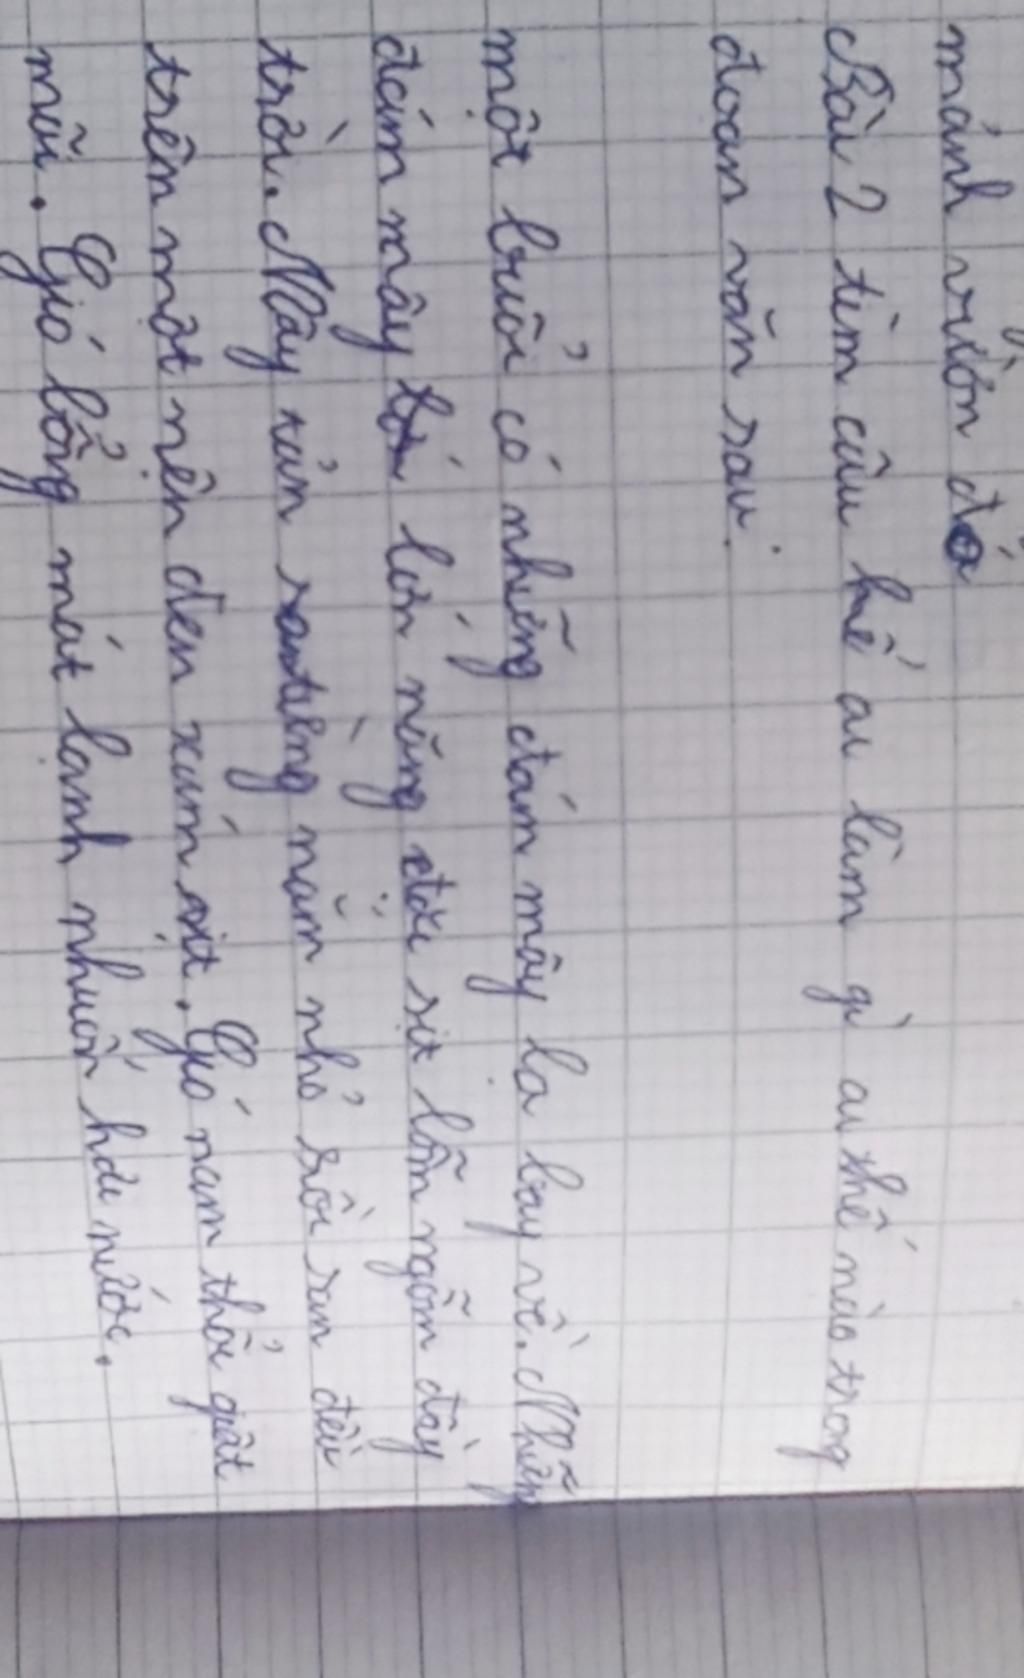 mảnh vườn đó
Bài 2 tìm câu kể ai làm gì ai thế nào trong
đoan văn sau:
một buổi có những đám mây lạ bay về. Những
đám mây lớn nặng đặc sịt lổm ngổm đầy
trời. Mây tản ra từng nắm nhỏ rồi san đều
trên một nền đen xám xịt. Gió nam thổi giật
mãi. Gió bỗng mát lạnh nhuốm hơi nước.